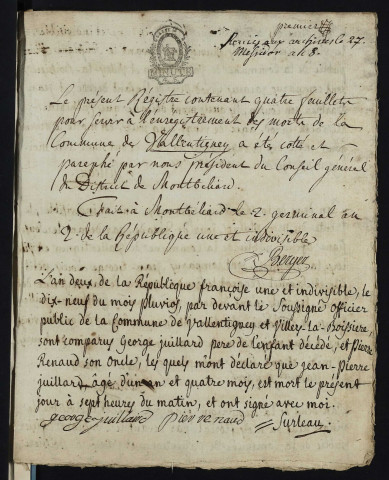 premier
Remis aux archives le 27.
Messidor an 8.
MINUTE
Le présent Régistre contenant quatre feuillets
pour servir a l'enregistrement des morts de la
Commune de Vallentigney a étés coté et
paraphé par nous président du Conseil général
du District de Montbéliard.
Fait à Montbéliard le 2. germinal an
2 de la République une et indivisible
Berger
L'an deux de la République françoise une et indivisible, le
dix-neuf du mois pluvios, par devant le Soussigné officier
public de la Commune de Vallentigney et Villers-la-Boissiere,
sont comparus George juillard pere de l'enfant décédé, et Pierre
Renaud son oncle, les quels mont déclaré que jean-pierre
juillard âgé dun an et quatre mois, est mort le présent
jour à sept heures du matin, et ont signé avec moi.
george juillard pier renaud Surleau